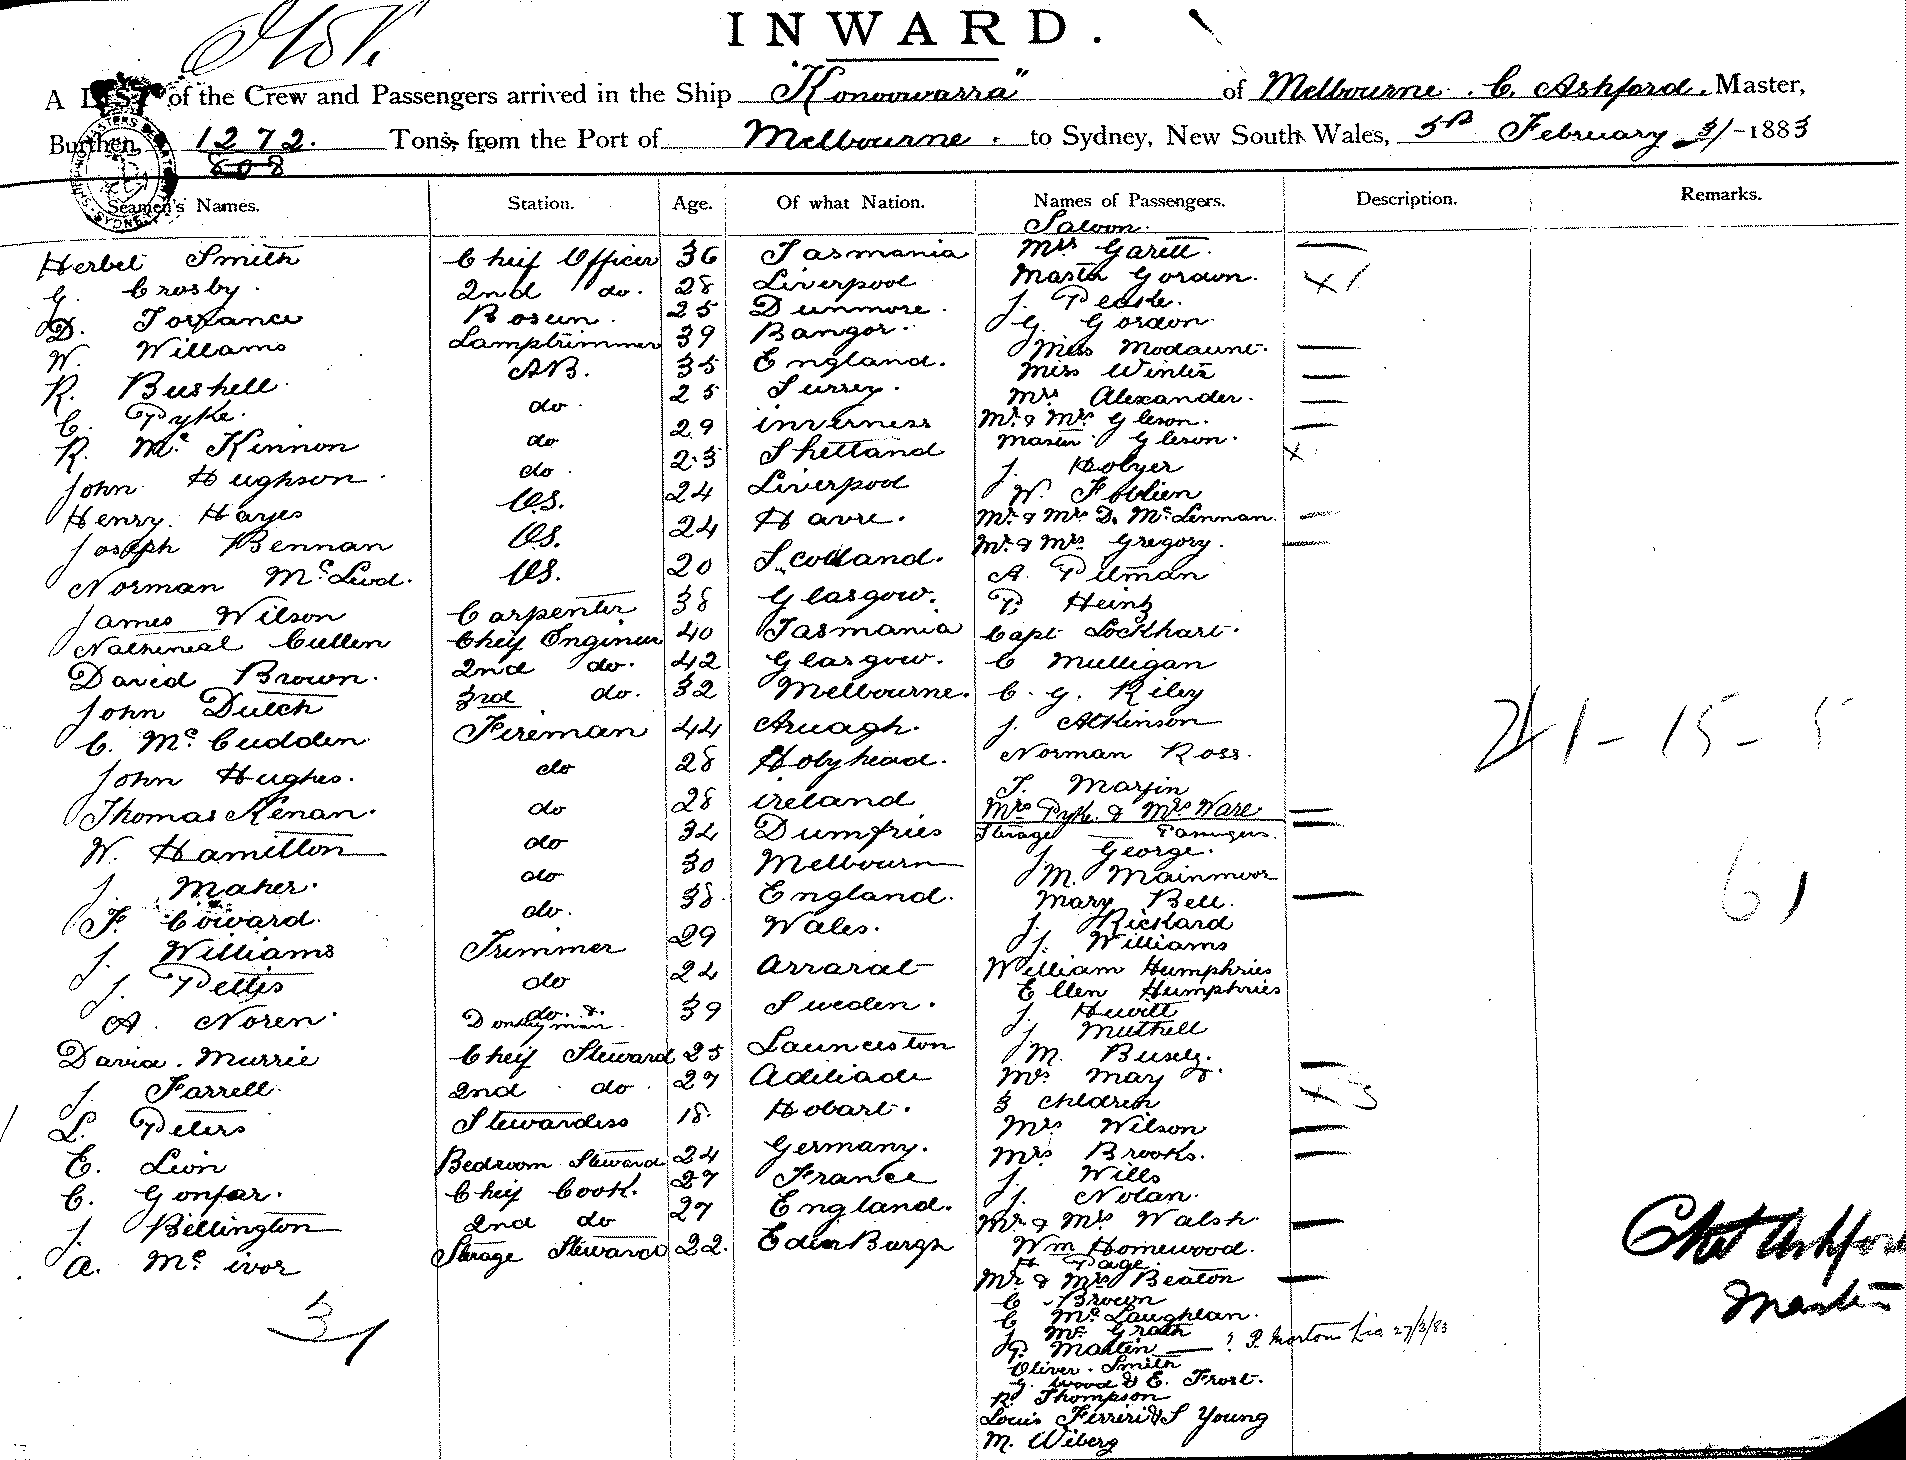 INWARD.
A LIST of the Crew and Passengers arrived in the Ship "Konoowarra" of Melbourne. C. Ashford. Master,
Burthen 1272. Tons, from the Port of Melbourne. to Sydney, New South Wales, 5th February 31-1883
808
Seamen's Names. Station. Age. Of what Nation. Names of Passengers. Description. Remarks.
Saloon.
Herbet Smith Cheif Officer 36 Tasmania Mrs Garett.
G. Crosby. 2nd do. 28 Liverpool Master Gordon. x 1
D. Torrance Bosun. 25 Dunmore. J. Peake.
W. Willams Lamptrimmer 39 Bangor. G. Gordon
R. Bushell. AB. 35 England. Miss Modaunt.
C. Pyke. do. 25 Surrey. Miss Winter
R. Mc Kinnon do 29 inverness Mrs Alexander.
John Hughson. do. 23 Shetland Mr & Mrs Gleson.
Henry. Hayes O.S. 24 Liverpool Master Gleson. x
Joseph Bennan O.S. 24 Havre. J. Holyer
Norman McLeod. O.S. 20 Scotland. W.
James Wilson Carpenter 38 Glasgow. Mr & Mrs D. McLennan.
Nathineal Cullen Cheif Enginer 40 Tasmania Mr & Mrs Gregory.
David Brown. 2nd do. 42 Glasgow. A. Pitman
John Dutch 3rd do. 32 Melbourne. P. Heintz
C. McCudden Fireman 44 Armagh. Capt Lockhart.
John Hughes. do 28 Holyhead. C Mulligan
Thomas Kenan. do 28 ireland C. G. Riley
W. Hamilton do 34 Dumfries J. Atkinson
J. Maher. do 30 Melbourn Norman Ross.
F. Coward. do. 38 England. T. Marjin
J. Williams Trimmer 29 Wales. Mrs Pyke. & Mrs Ware
J. Pettis do 24 Ararat Sterage Passengers.
A. Noren do. & Donkeyman. 39 Sweden. J. George.
David. Murrie Cheif Steward 25 Launceston M. Mainmoor
J. Farrell. 2nd do. 27 Adeliade Mary Bell.
L. Peters Stewardess 18. Hobart. J. Rickard
E. Leon Bedroom Steward 24 Germany. J. Williams
C. Gonfar. Cheif Cook. 27 France William Humphries
J. Billington 2nd do 27 England. Ellen Humphries
A. Mc ivor Sterage Steward 22. EdenBurgh J. Hewitt
J. Muthell
M. Busely.
Mrs May &
3 Children x 3
Mrs Wilson
Mrs Brooks.
J. Wills
J. Nolan.
Mr & Mrs Walsh.
Wm Homewood.
H Page.
Mr & Mrs Beaton
C. Brown
C McLaughlan.
J McGrath
P. Martin ? P. Morton Lic 27/3/83
Oliver. Smith
G. Wood & E. Frost.
R. Thompson
Louis Ferrier & S Young
M. Wiberg
31
241-15-5
61
Chas Ashford
Master